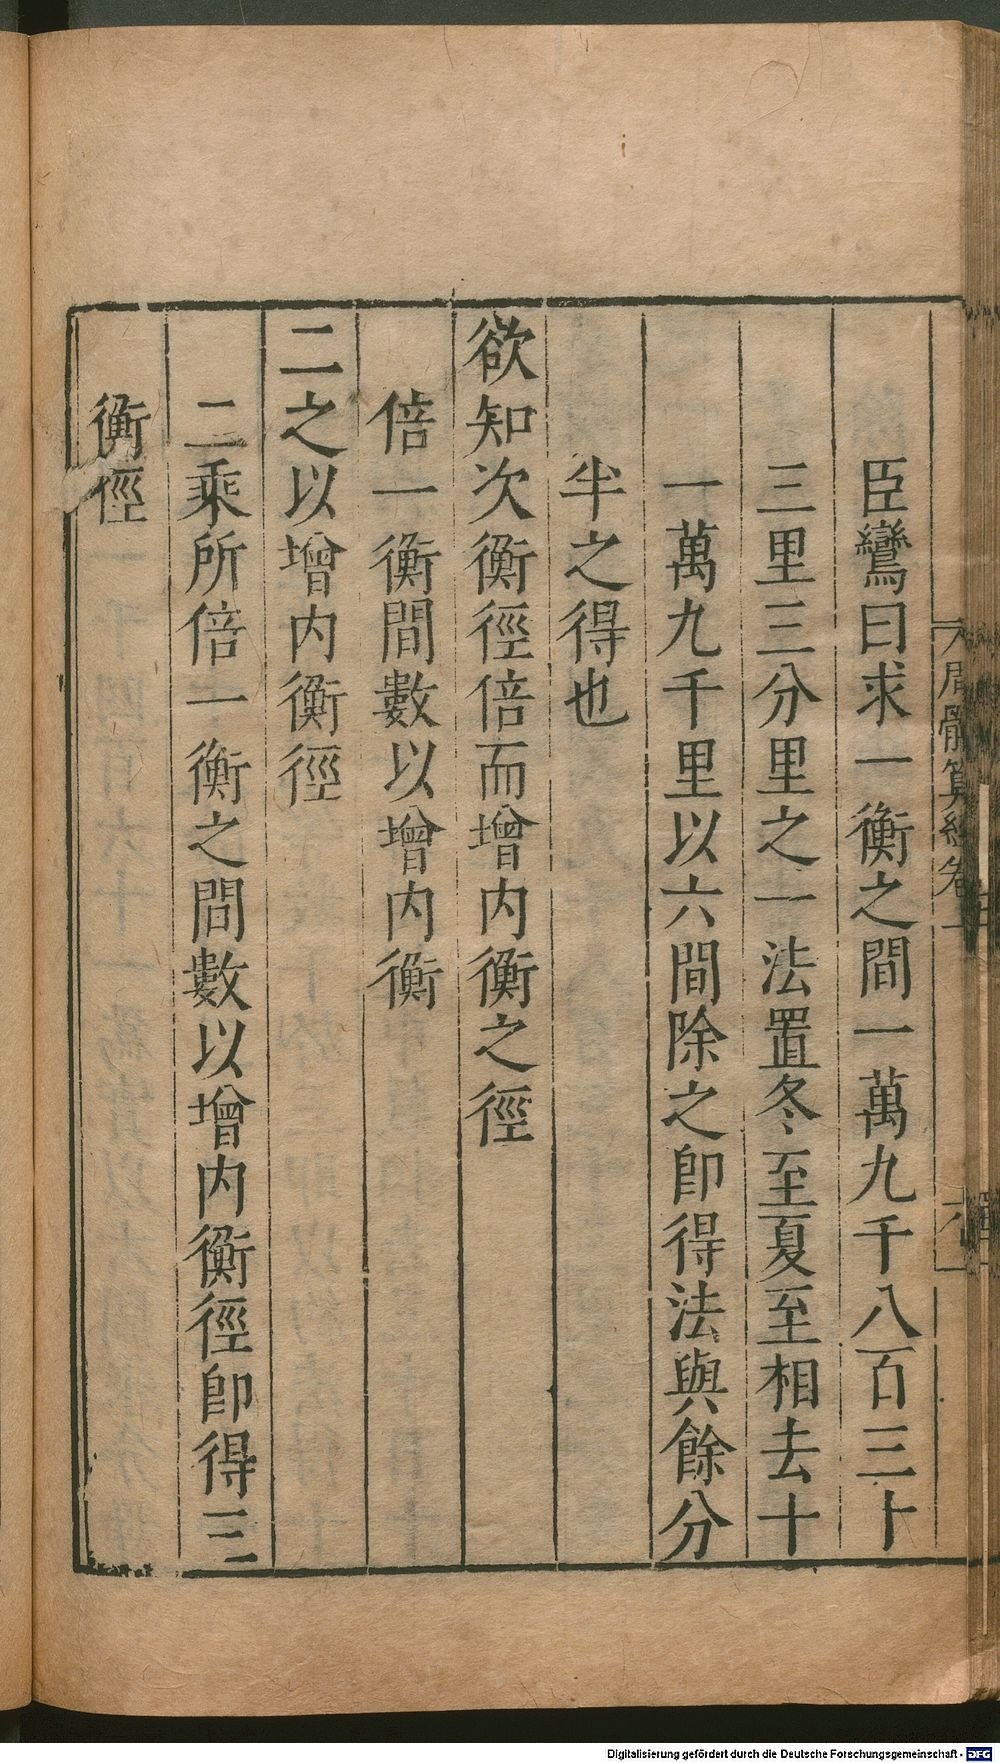 臣鸞曰求一衡之間一萬九千八百三十
三里三分里之一法置冬至夏至相去十
一萬九千里以六間除之卽得法與餘分
半之得也
欲知次衡徑倍而增內衡之徑
倍一衡間數以增內衡
二之以增內衡徑
二乘所倍一衡之間數以增內衡徑卽得三
衡徑
周髀算經卷一
Digitalisierung gefördert durch die Deutsche Forschungsgemeinschaft - DFG